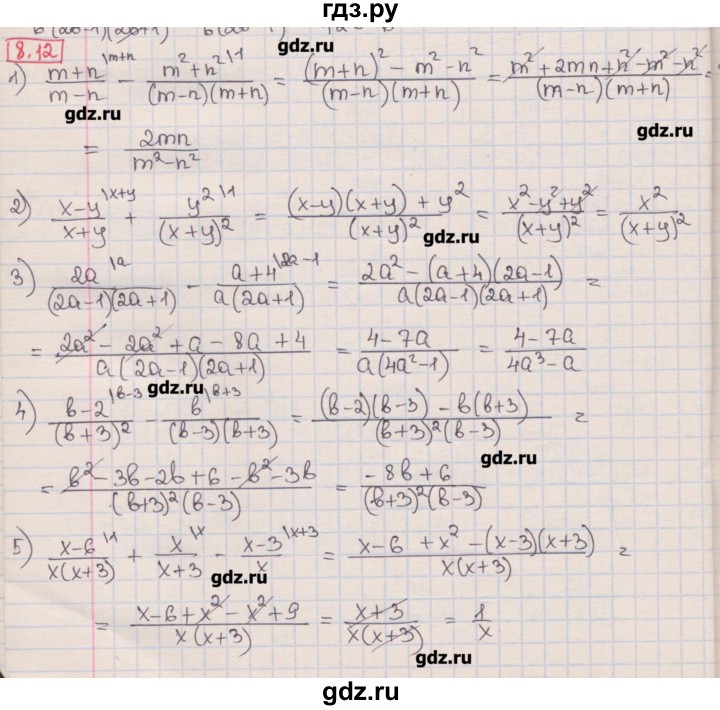 гдз.ру
8.12
1) \frac{m+n}{m-n}^{\m+n} - \frac{m²+n²}{(m-n)(m+n)}^{\1} = \frac{(m+n)²-m²-n²}{(m-n)(m+n)} = \frac{m²+2mn+n²-m²-n²}{(m-n)(m+n)} =
gdz.ru
gdz.ru
gdz.ru
= \frac{2mn}{m²-n²}
2) \frac{x-y}{x+y}^{\x+y} + \frac{y²}{(x+y)²}^{\1} = \frac{(x-y)(x+y)+y²}{(x+y)²} = \frac{x²-y²+y²}{(x+y)²} = \frac{x²}{(x+y)²}
gdz.ru
3) \frac{2a}{(2a-1)(2a+1)}^{\a} - \frac{a+4}{a(2a+1)}^{\2a-1} = \frac{2a²-(a+4)(2a-1)}{a(2a-1)(2a+1)} =
= \frac{2a²-2a²+a-8a+4}{a(2a-1)(2a+1)} = \frac{4-7a}{a(4a²-1)} = \frac{4-7a}{4a³-a}
gdz.ru
4) \frac{b-2}{(b+3)²}^{\b-3} - \frac{b}{(b-3)(b+3)}^{\b+3} = \frac{(b-2)(b-3)-b(b+3)}{(b+3)²(b-3)} =
gdz.ru
= \frac{b²-3b-2b+6-b²-3b}{(b+3)²(b-3)} = \frac{-8b+6}{(b+3)²(b-3)}
5) \frac{x-6}{x(x+3)}^{\1} + \frac{x}{x+3}^{\x} - \frac{x-3}{x}^{\x+3} = \frac{x-6+x²-(x-3)(x+3)}{x(x+3)} =
gdz.ru
= \frac{x-6+x²-x²+9}{x(x+3)} = \frac{x+3}{x(x+3)} = \frac{1}{x}
gdz.ru
gdz.ru